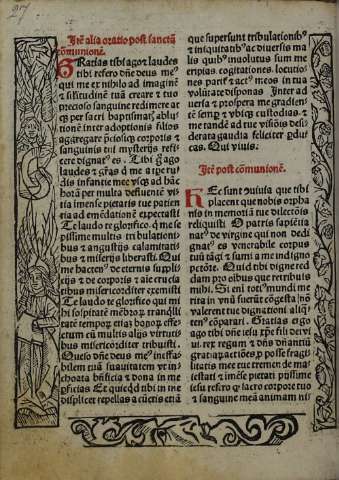 27
Itē alia oratio post sanctā
cōmunionē.
Gratias tibi ago et laudes
tibi refero dn̄e deus me⁹
qui me ex nihilo ad imaginē
& s̄ilitudinē tuā creare & tuo
precioso sanguine redimere at
qꝫ per sacri baptismatꝭ ablu
tionē inter adoptionis filios
aggregare
sanguinis tui mysterijs refi
cere dignatꝰ es. Tibi ago
laudes & gr̄as q̄ me a
infantie mee vsqꝫ ad hāc
horā per multa deuiantē vi
tia imensa pietatis tue patien
tia ad emēdationē expectasti
Te laudo te glorifico. q̄ me sȩ
pissime multis tribulationi
bus & angustijs calamitati
bus & miserijs liberasti. Qui
me hactenꝰ de eternis suppli
cijs & de corporis & aīe crucia
tibus misericorditer
Te laudo te glorifico qui mi
hi sospitatē mēbrorꝫ tranq̄lli
tatē temporꝫ
ctum cū multis alijs virtuti
bus misericorditer tribuisti.
Queso dn̄e deus me⁹ ineffa
bilem tuā suauitatem vt in
choata bn̄ficia & dona in me
ꝑficias Et quicqd tibi in me
displicet repellas a cūctis etiā
que supersunt tribulationibꝰ
& iniquitatibꝰ ac diuersis ma
lis quibꝰ inuolutus sum me
eripias cogitationes locutio
nes & actꝰ meos in tua
volūtate disponas Inter ad
uersa & prospera me gradien
tē semꝑ & vbiqꝫ custodias. &
me tandē ad tue visiōis desi
derata gaudia feliciter ꝑdu
cas. Qui viuis:
Itē post cōmunionē.
Hec sunt que tibi
placent que nobis orpha
nis in memoriā tue dilectiōis
reliquisti O patris sapiētia
natꝰ de virgine qui non dedi
gnatꝰ es venerabile corpus
tuū tāgi & sumi a me indigno
pctōre. Quid tibi digne red
dam pro oībus que retribuis
mihi. Si eni totꝰ mundi me
rita in vnū fuerūt cōgesta nō
valerent tue dignationi aliqn̄
tenꝰ cōparari. Gratias ergo
ago tibi dn̄e iesu xp̄e fili dei vi
ui. rex regum & dn̄s dn̄antiū
gratiaꝝ actiōes ꝓ posse fragi
litatis mee tue tremende ma
iestati & imēse pietati pijssime
iesu refero q̄ sacro corpore tuo
& sanguine meā animam ni